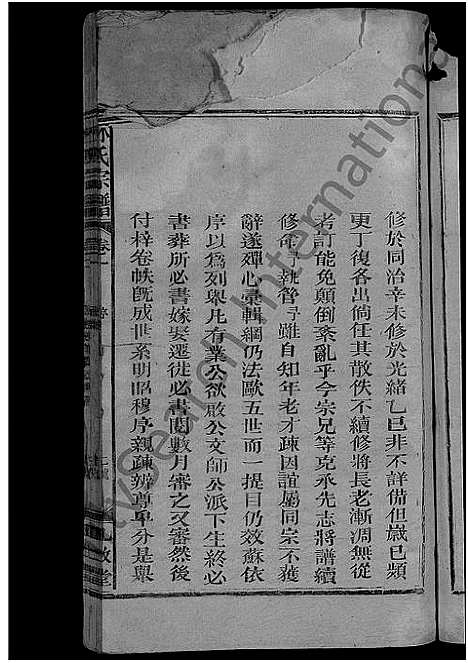 修於同治辛未修於光緒乙巳非不詳備但歲已頻
更丁復各出倘任其散佚不續修將長老漸凋無從
考訂能免顛倒紊亂乎今宗兄等克承先志將譜續
修命予執管予雖自知年老才疎因誼屬同宗不獲
辭遂殫心彙輯綱仍法歐五世而一提目仍效蘇依
序以為列舉凡有業公欲啟公文師公派下生終必
書葬所必書嫁娶遷徙必書閱數月審之又審然後
付梓卷帙既成世系明昭穆序親疎辨尊卑分是舉
林氏宗譜
卷之一
九牧堂
International